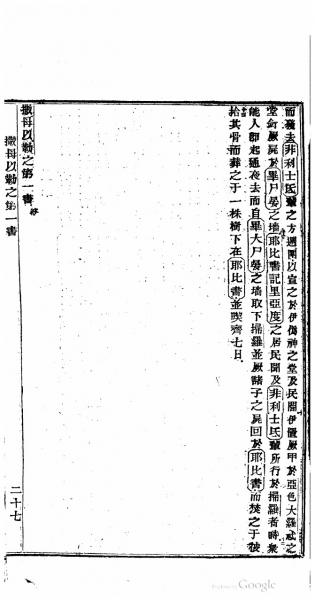 而遣去非利士氐輩之方週圍以宣之於伊偶神之堂及民間伊置厥甲於亞色大羅忒之
堂釘厥屍於畢尸晏之墻耶比書記里亞度之居民聞及非利士氐輩所行於掃羅者時衆
能人卽起通夜去而自畢大尸晏之墻取下掃羅並厥諸子之屍回於耶比書而焚之于彼
拾其骨而葬之于一株樹下在耶比書並禁齊七日
撒母以勒之第一書 終
撒母以勒之第一書
二十七
Google